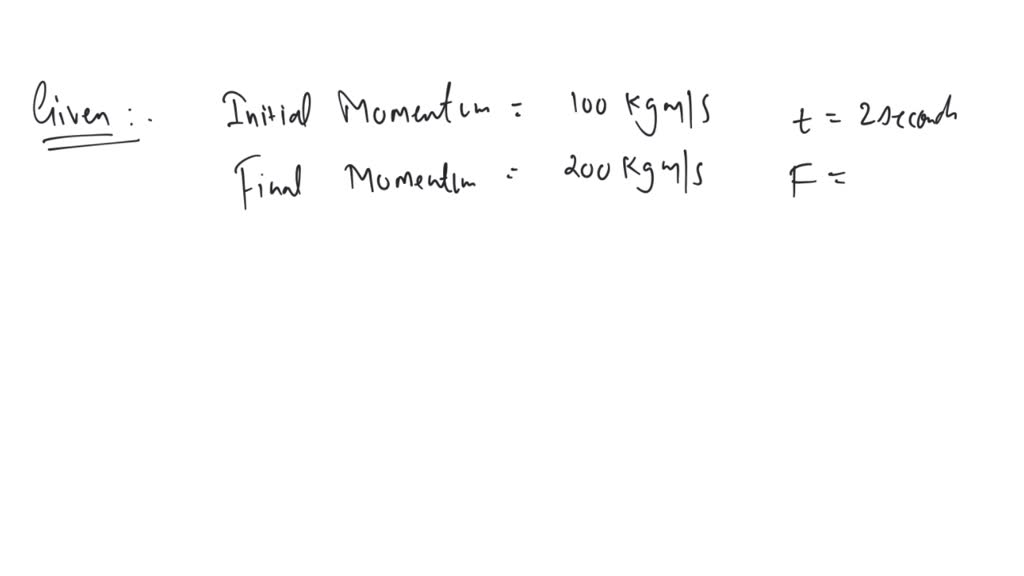 Given :. Initial Momentum = 100 Kgm/s t = 2 seconds
Final Momentum = 200 Kgm/s F =